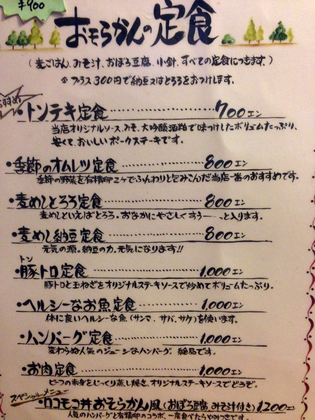 ¥900
おそらかんの定食
(麦ごはん、みそ汁、おぼろ豆腐、小鉢、すべての定食につきます)
※プラス300円で納豆又はとろろをおつけします。
すすめ
・トンテキ定食…………700エン
当店オリジナルソース、みそ、大吟醸酒粕で味つけしたボリュームたっぷり、
安くておいしいポークステーキです。
・季節のオムレツ定食…………800エン
季節の野菜を有精卵2ケでふんわりと包みこんだ当店一番のおすすめです。
・麦めしとろろ定食…………800エン
麦めしといえばとろろ。おなかにやさしくすぅーっと入ります。
・麦めし納豆定食…………800エン
元気の源。納豆の力。元気になります!!
トン
・豚トロ定食…………1,000エン
豚トロと玉ねぎをオリジナルステーキソースで炒めてボリュームたっぷり。
・ヘルシーなお魚定食……1,000エン
体に良いヘルシーな魚(サンマ、サバ、サケ)を使います。
・ハンバーグ定食…………1,000エン
変わらぬ人気のジューシーなハンバーグ 絶品です。
・お肉定食…………1,000エン
ビーフの赤身をじっくり蒸し焼き。オリジナルステーキソースでどうぞ。
スペシャルメニュー
・ロコモコ丼おそらかん風(おぼろ豆腐、みそ汁付き)1,200エン
人気のハンバーグと有精卵のコラボ。一度食べたらやみつきです。